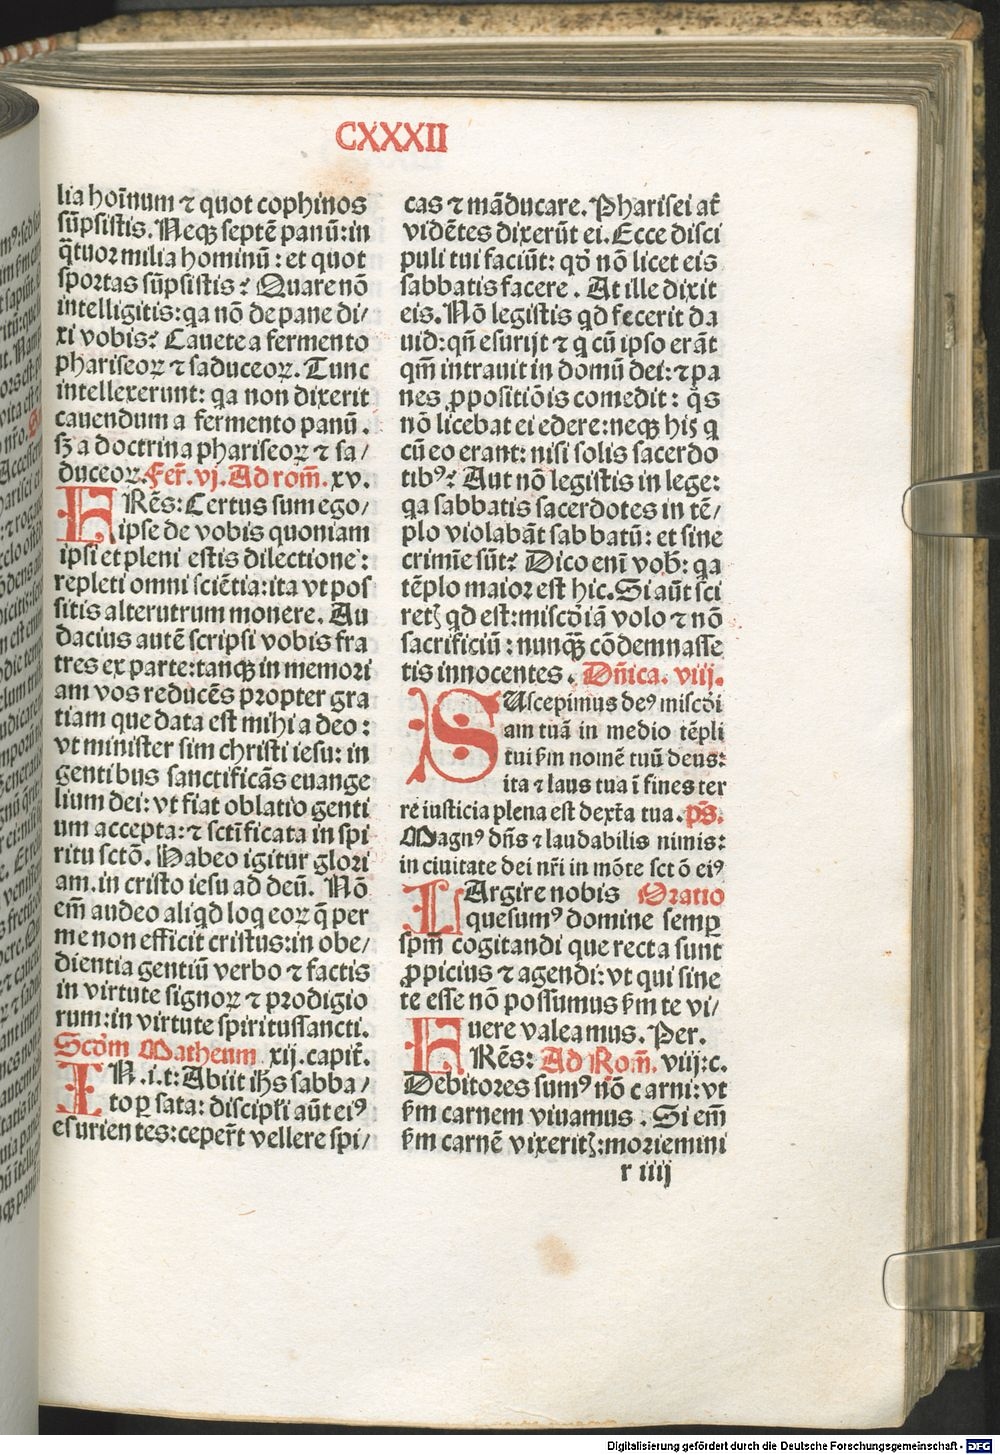 CXXXII
lia hoīnum ⁊ quot cophinos
sūpsistis. Neqꝫ septē panū: in
q̄tuor milia hominū: et quot
sportas sūpsistis? Quare nō
intelligitis: qa nō de pane di/
xi vobis? Cauete a fermento
phariseoꝝ ⁊ saduceoꝝ. Tunc
intellexerunt: qa non dixerit
cauendum a fermento panū.
sꝫ a doctrina phariseoꝝ ⁊ sa/
duceoꝝ. Fer̄. vj. Ad rom̄. xv.
FRēs: Certus sum ego/
ipse de vobis quoniam
ipsi et pleni estis dilectione:
repleti omni sciētia: ita vt pos
sitis alterutrum monere. Au
dacius autē scripsi vobis fra
tres ex parte: tanqꝫ in memori
am vos reducēs propter gra
tiam que data est mihi a deo:
vt minister sim christi iesu: in
gentibus sanctificās euange
lium dei: vt fiat oblatio genti
um accepta: ⁊ sctīficata in spi
ritu sctō. Habeo igitur glori
am. in cristo iesu ad deū. Nō
em̄ audeo aliqd loq eoꝝ q̄ per
me non efficit cristus: in obe/
dientia gentiū verbo ⁊ factis
in virtute signoꝝ ⁊ prodigio
rum: in virtute spiritussancti.
Scdm̄ Matheum xij. capit̄.
IN. i. t: Abiit ihs̄ sabba/
to ꝑ sata: discipłi aūt eiꝰ
esurien tes: ceper̄t vellere spi/
cas ⁊ māducare. Pharisei at̄
vidētes dixerūt ei. Ecce disci
puli tui faciūt: qd̄ nō licet eis
sabbatis facere. At ille dixit
eis. Nō legistis qd fecerit da
uid: qn̄ esurijt ⁊ q cū ipso erāt
qm̄ intrauit in domū dei: ⁊ pa
nes ꝓpositiōis comedit: q̄s
nō licebat ei edere: neqꝫ hiꝭ q
cū eo erant: nisi solis sacerdo
tibꝰ? Aut nō legistis in lege:
qa sabbatis sacerdotes in tē/
plo violabāt sabbatū: et sine
crimīe sūt? Dico eni vob̄: qa
tēplo maior est hic. Si aūt sci
retꝭ qd est: miscdīā volo ⁊ nō
sacrificiū: nunqꝫ cōdemnasse
tis innocentes. Dn̄ica. viij.
SUscepimus deꝰ miscdi
am tuā in medio tēpli
tui ẜm nomē tuū deus:
ita ⁊ laus tua ī fines ter
re iusticia plena est dext̄a tua. ps̄.
Magnꝰ dn̄s ⁊ laudabilis nimis:
in ciuitate dei nr̄i in mōte sct ō eiꝰ
LArgire nobis Oratio
quesumꝰ domine semꝑ
spm̄ cogitandi que recta sunt
ꝓpicius ⁊ agendi: vt qui sine
te esse nō possumus ẜm te vi/
uere valeamus. Per.
FRēs: Ad Rom̄. viij: c.
Debitores sumꝰ nō c arni: vt
ẜm carnem viuamus. Si em̄
ẜm carnē vixeritꝭ: moriemini
r iiij
Digitalisierung gefördert durch die Deutsche Forschungsgemeinschaft - DFG